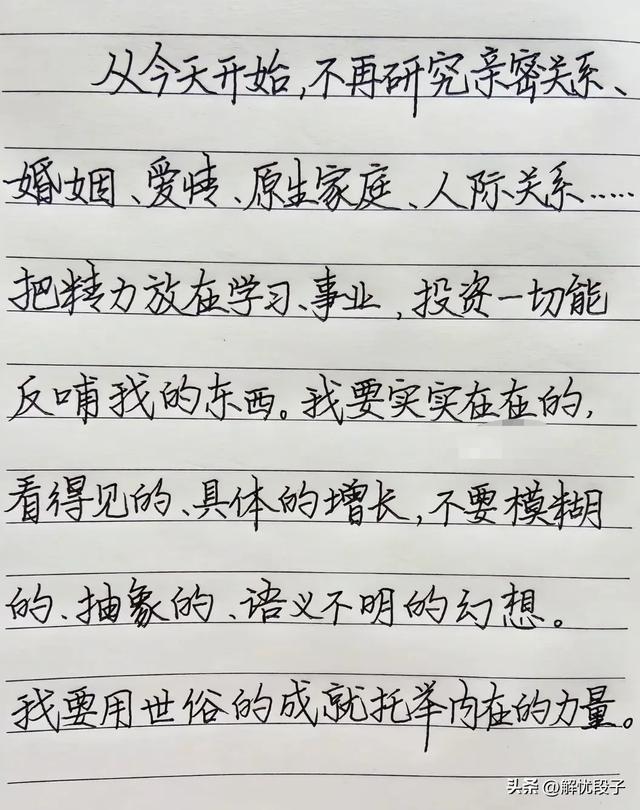 从今天开始,不再研究亲密关系、
婚姻、爱情、原生家庭、人际关系……
把精力放在学习、事业,投资一切能
反哺我的东西。我要实实在在的,
看得见的、具体的增长,不要模糊
的、抽象的、语义不明的幻想。
我要用世俗的成就托举内在的力量。
头条 @解忧段子